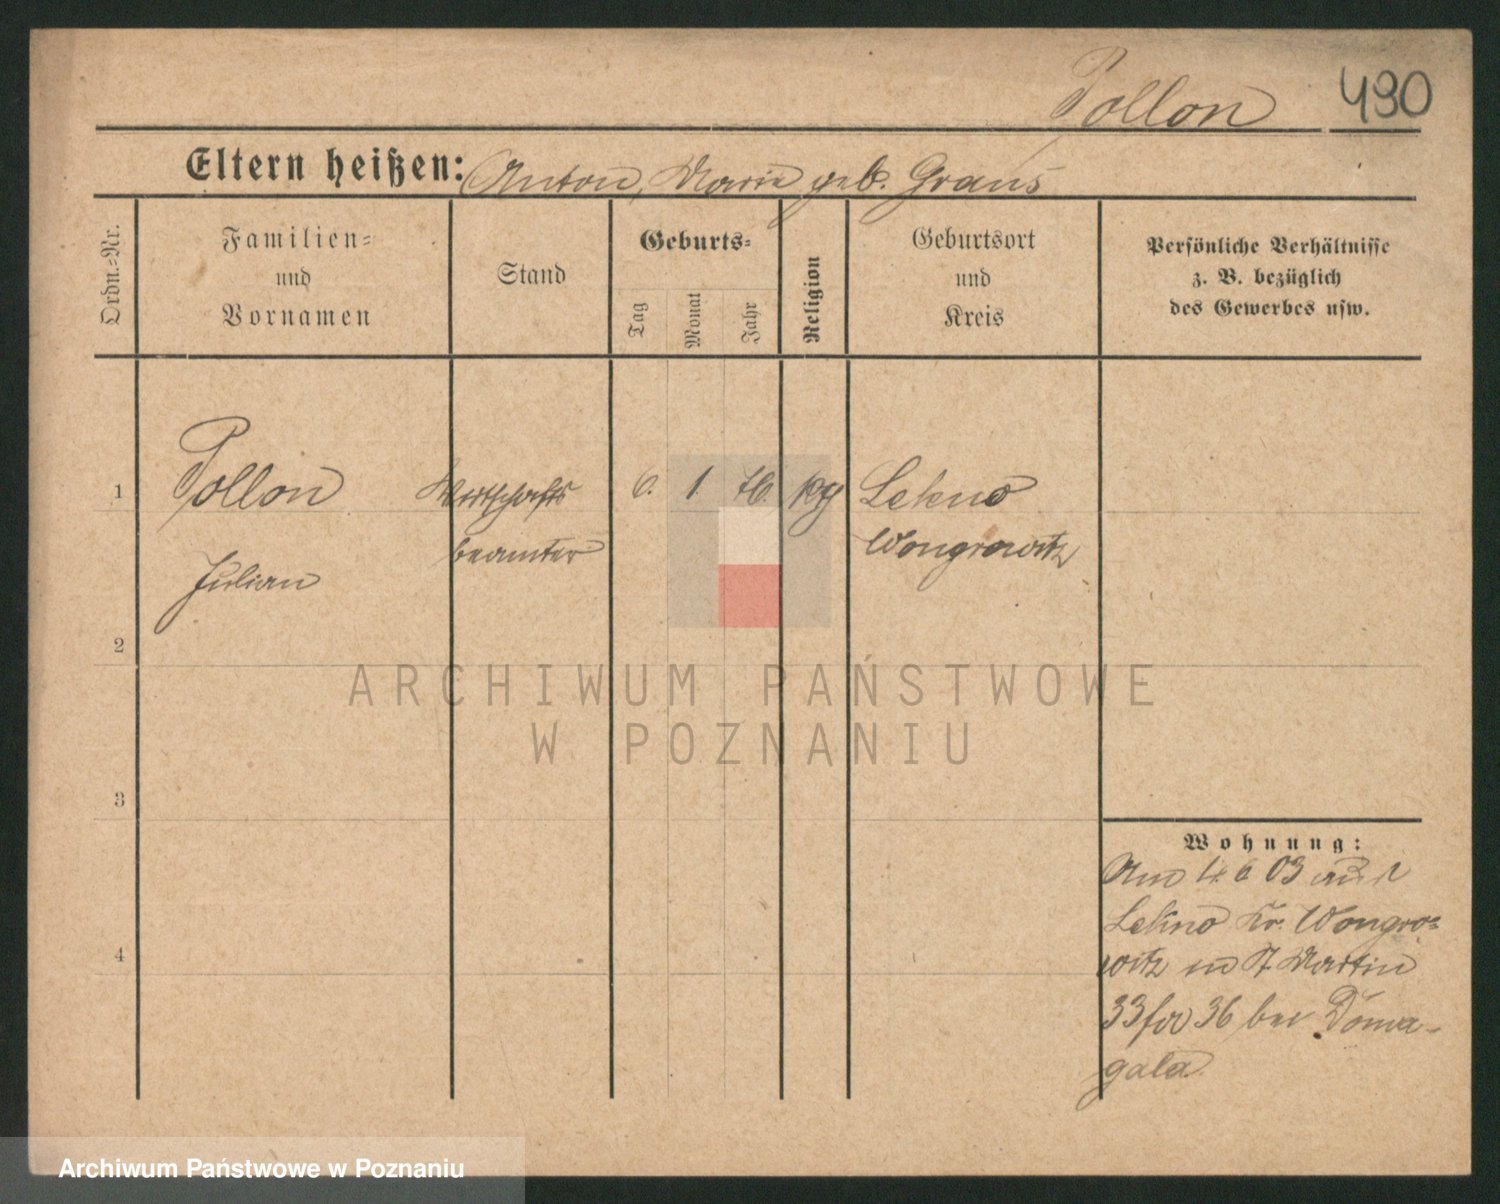 Pollon 490
Eltern heißen: Anton, Marie geb. Graus
Ordn.-Nr.
Familien-
und
Vornamen
Stand
Geburts-
Tag
Monat
Jahr
Religion
Geburtsort
und
Kreis
Persönliche Verhältnisse
z. B. bezüglich
des Gewerbes usw.
1 Pollon Wirtschafts 6. 1. 76. Lekno
beamter Wongrowitz
Julian
2
3
4
Wohnung:
Am 4 6 03 aus
Lekno Kr. Wongro-
witz in St Martin
33 36 bei Doma-
gala
ARCHIWUM PAŃSTWOWE
W POZNANIU
Archiwum Państwowe w Poznaniu